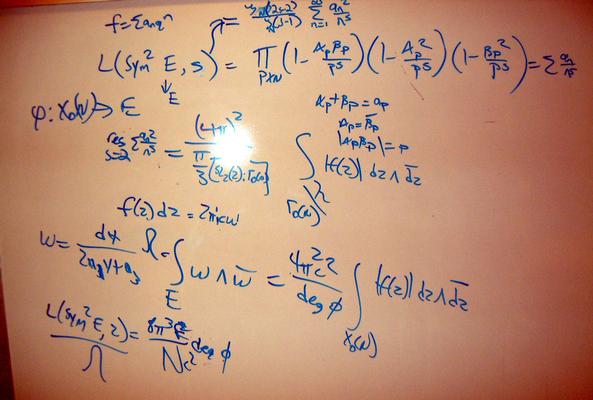 f = Σ aₙqⁿ
= ζ_N(2s-2)/ζ_N(s-1) Σ_{n=1}^∞ aₙ²/nˢ
L(Sym² E, s) = ∏_{p∤N} (1 - A_pB_p/pˢ)(1 - A_p²/pˢ)(1 - B_p²/pˢ) = Σ aₙ/nˢ
↓ E
φ: X₀(N) → E
A_p + B_p = a_p
A_p = B̄_p
|A_pB_p| = p
res_{s=2} Σ aₙ²/nˢ = (4π)² / (π/3 [SL₂(Z):Γ₀(N)]) ∫_{Γ₀(N)\h} |f(z)| dz∧d̄z̄
f(z)dz = 2πicω
ω = dx/(2y+a₁x+a₃) Ω = ∫_E ω∧ω̄ = 4π²c²/deg φ ∫_{X₀(N)} |f(z)| dz∧dz̄
L(Sym² E, 2)/Ω = 8π³/Nc² deg φ